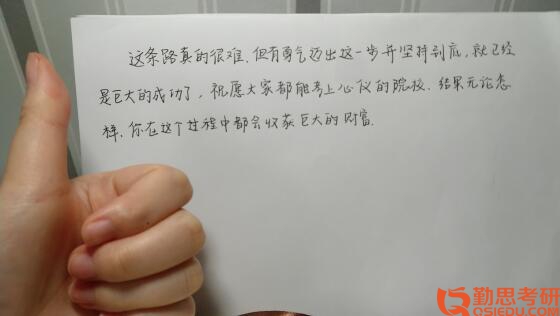 这条路真的很难，但有勇气迈出这一步并坚持到底，就已经
是巨大的成功了，祝愿大家都能考上心仪的院校，结果无论怎
样，你在这个过程中都会收获巨大的财富.
勤思考研
QSIEDU.COM